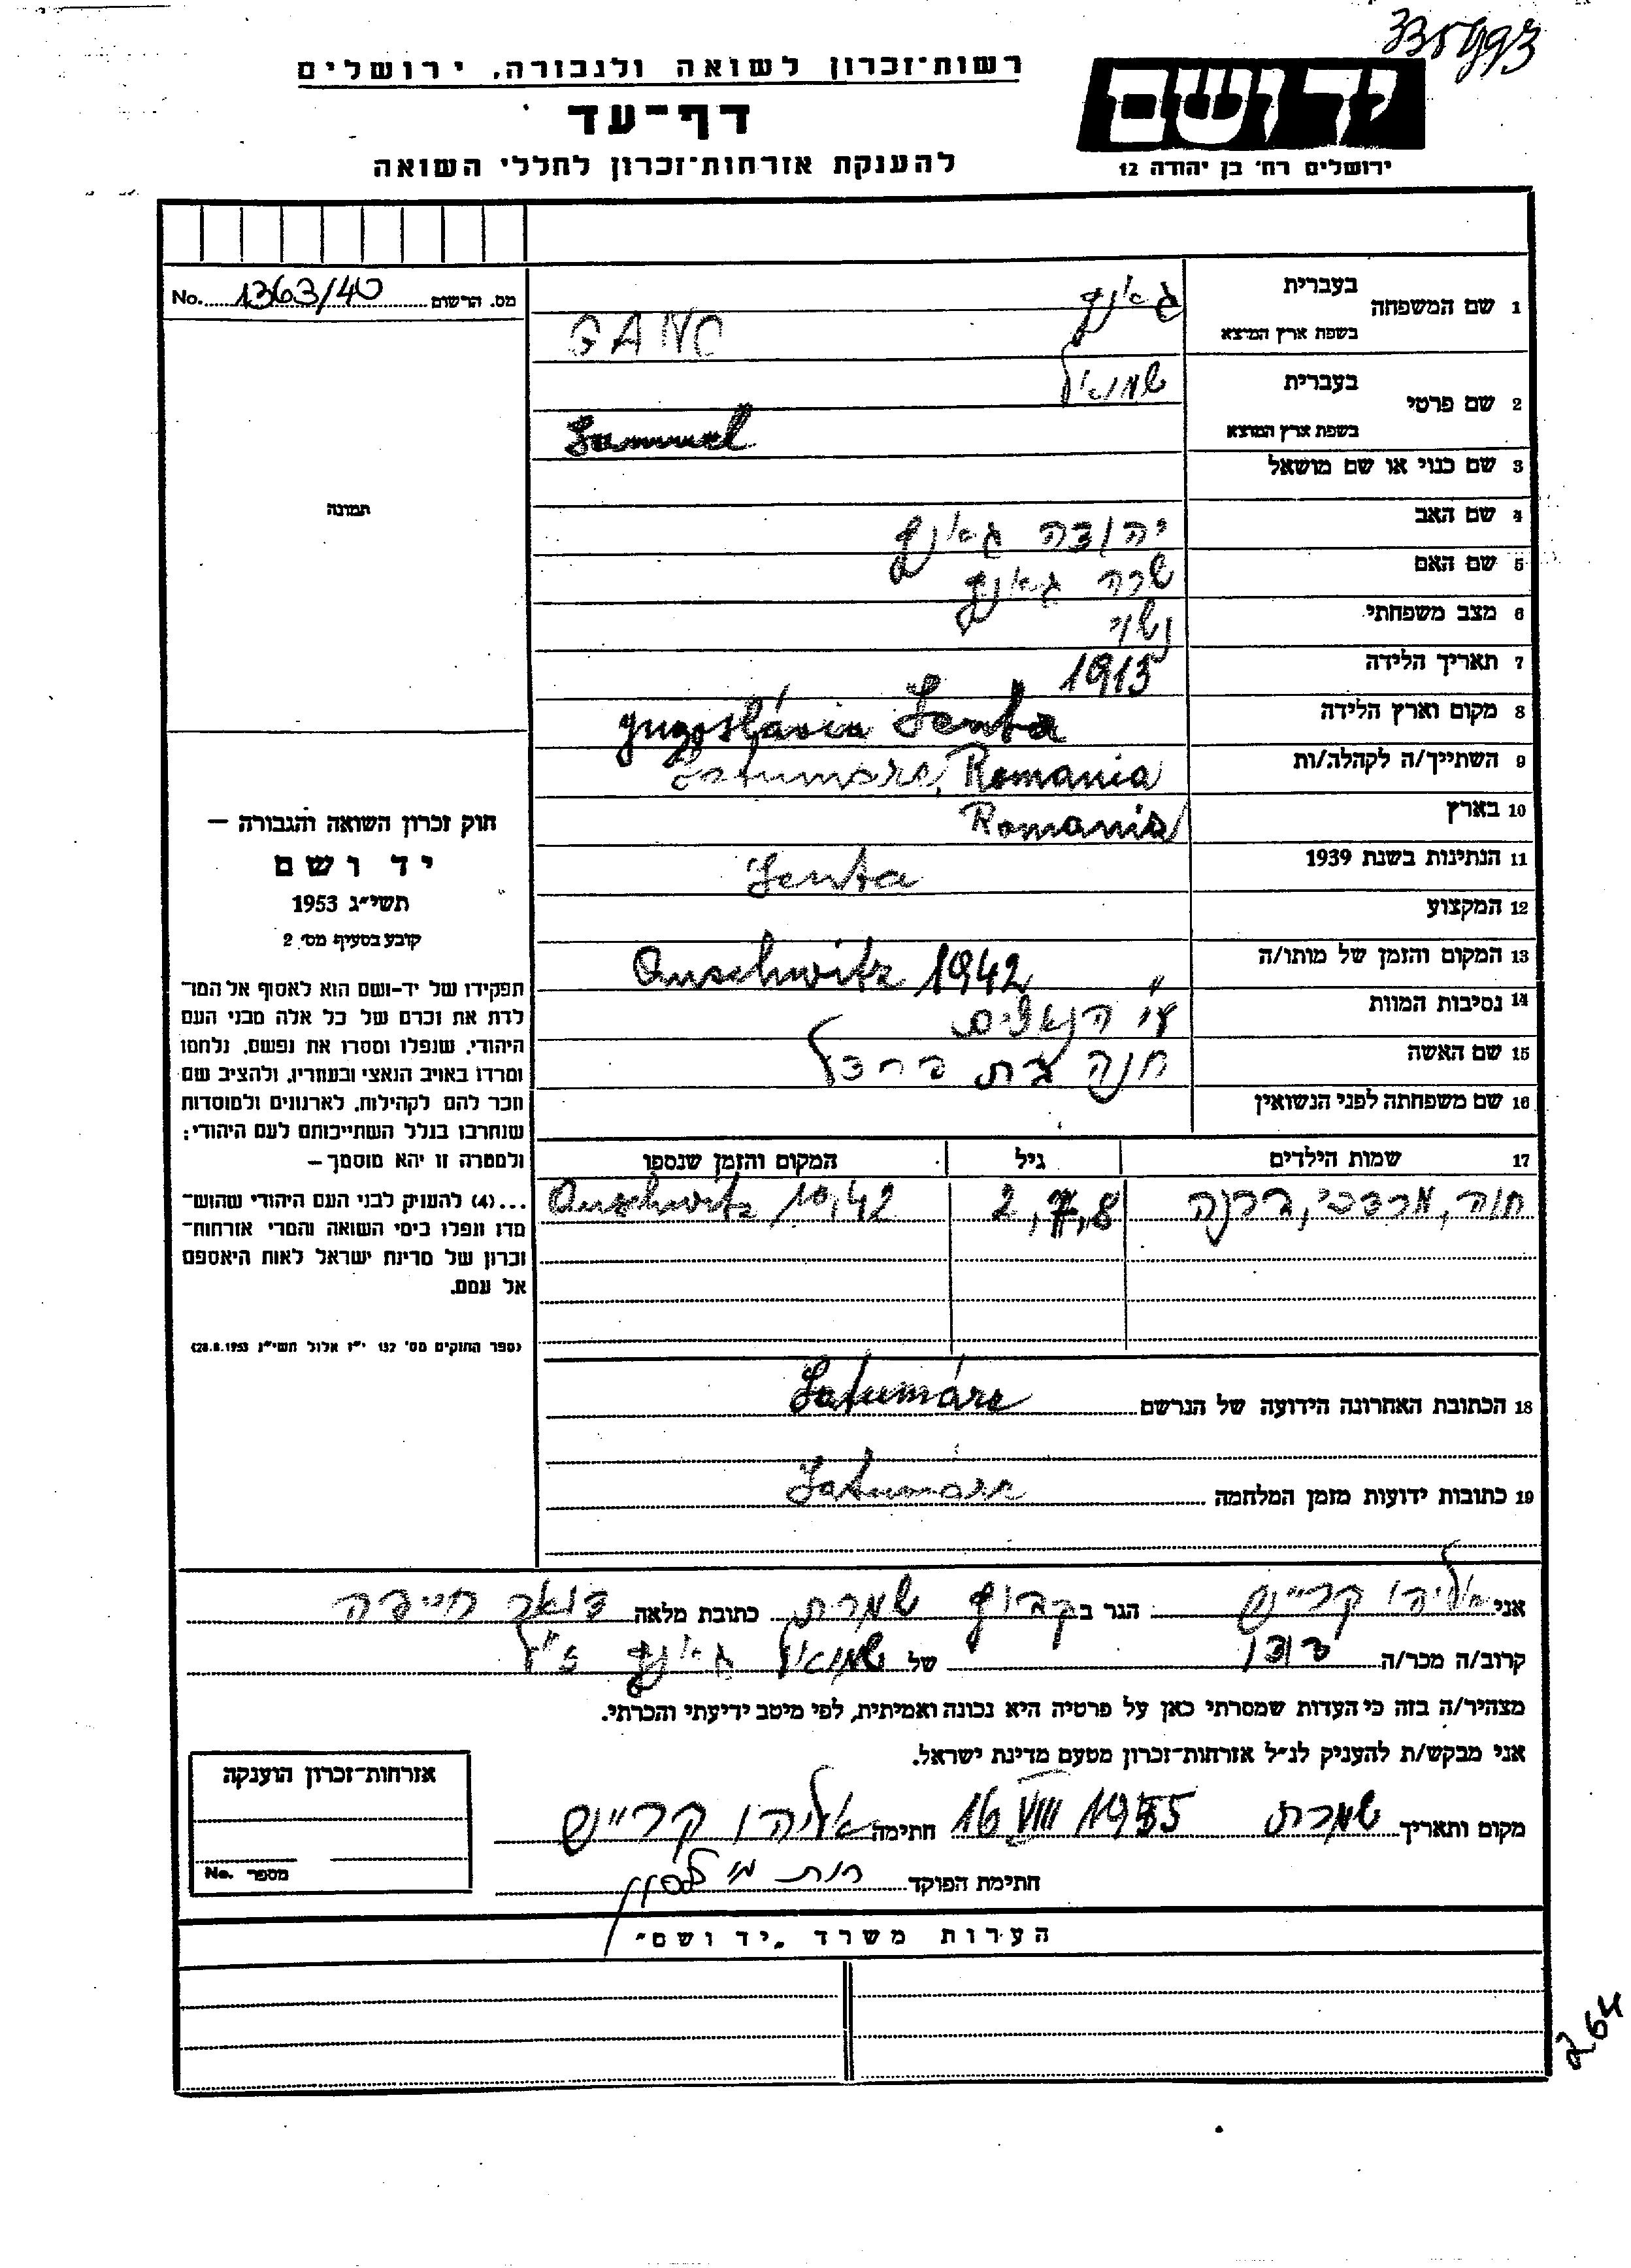 335993
רשות־זכרון לשואה ולגבורה, ירושלים
דף־עד
להענקת אזרחות־זכרון לחללי השואה
יד ושם
ירושלים רח׳ בן יהודה 12
No. 1363/40 מס. הרשום
תמונה
1 שם המשפחה בעברית גאנץ
בשפת ארץ המוצא GANC
2 שם פרטי בעברית שמואל
בשפת ארץ המוצא Samuel
3 שם כנוי או שם מושאל
4 שם האב יהודה גאנץ
5 שם האם שרה גאנץ
6 מצב משפחתי נשוי
7 תאריך הלידה 1913
8 מקום וארץ הלידה Jugoslávia Senta
9 השתייך/ה לקהלה/ות Satumare, Romania
10 בארץ Romania
11 הנתינות בשנת 1939 Senta
12 המקצוע
13 המקום והזמן של מותו/ה Auschwitz 1942
14 נסיבות המוות ע״י הנאצים
15 שם האשה חנה בת
16 שם משפחתה לפני הנשואין
17 שמות הילדים גיל המקום והזמן שנספו
חוה, מרדכי, 2, 7, 8 Auschwitz 1942
18 הכתובת האחרונה הידועה של הנרשם Satumáre
19 כתובות ידועות מזמן המלחמה Satumáre
חוק זכרון השואה והגבורה —
יד ושם
תשי״ג 1953
קובע בסעיף מס׳ 2
תפקידו של יד-ושם הוא לאסוף אל המו־
לדת את זכרם של כל אלה מבני העם
היהודי, שנפלו ומסרו את נפשם, נלחמו
ומרדו באויב הנאצי ובעוזריו, ולהציב שם
וזכר להם לקהילות, לארגונים ולמוסדות
שנחרבו בגלל השתייכותם לעם היהודי;
ולמטרה זו יהא מוסמך —
...(4) להעניק לבני העם היהודי שהוש־
מדו ונפלו בימי השואה והמרי אזרחות־
זכרון של מדינת ישראל לאות היאספם
אל עמם.
(ספר החוקים מס׳ 132 י״ז אלול תשי״ג 28.8.1953)
אני אליהו קרייש הגר ב קבוץ שמרת כתובת מלאה דואר חיפה
קרוב/ה מכר/ה דודו של שמואל גאנץ ז״ל
מצהיר/ה בזה כי העדות שמסרתי כאן על פרטיה היא נכונה ואמיתית, לפי מיטב ידיעתי והכרתי.
אני מבקש/ת להעניק לנ״ל אזרחות־זכרון מטעם מדינת ישראל.
מקום ותאריך שמרת 16 VIII 1955 חתימה אליהו קרייש
חתימת הפוקד רות
אזרחות־זכרון הוענקה
No. מספר
הערות משרד „יד ושם״
264